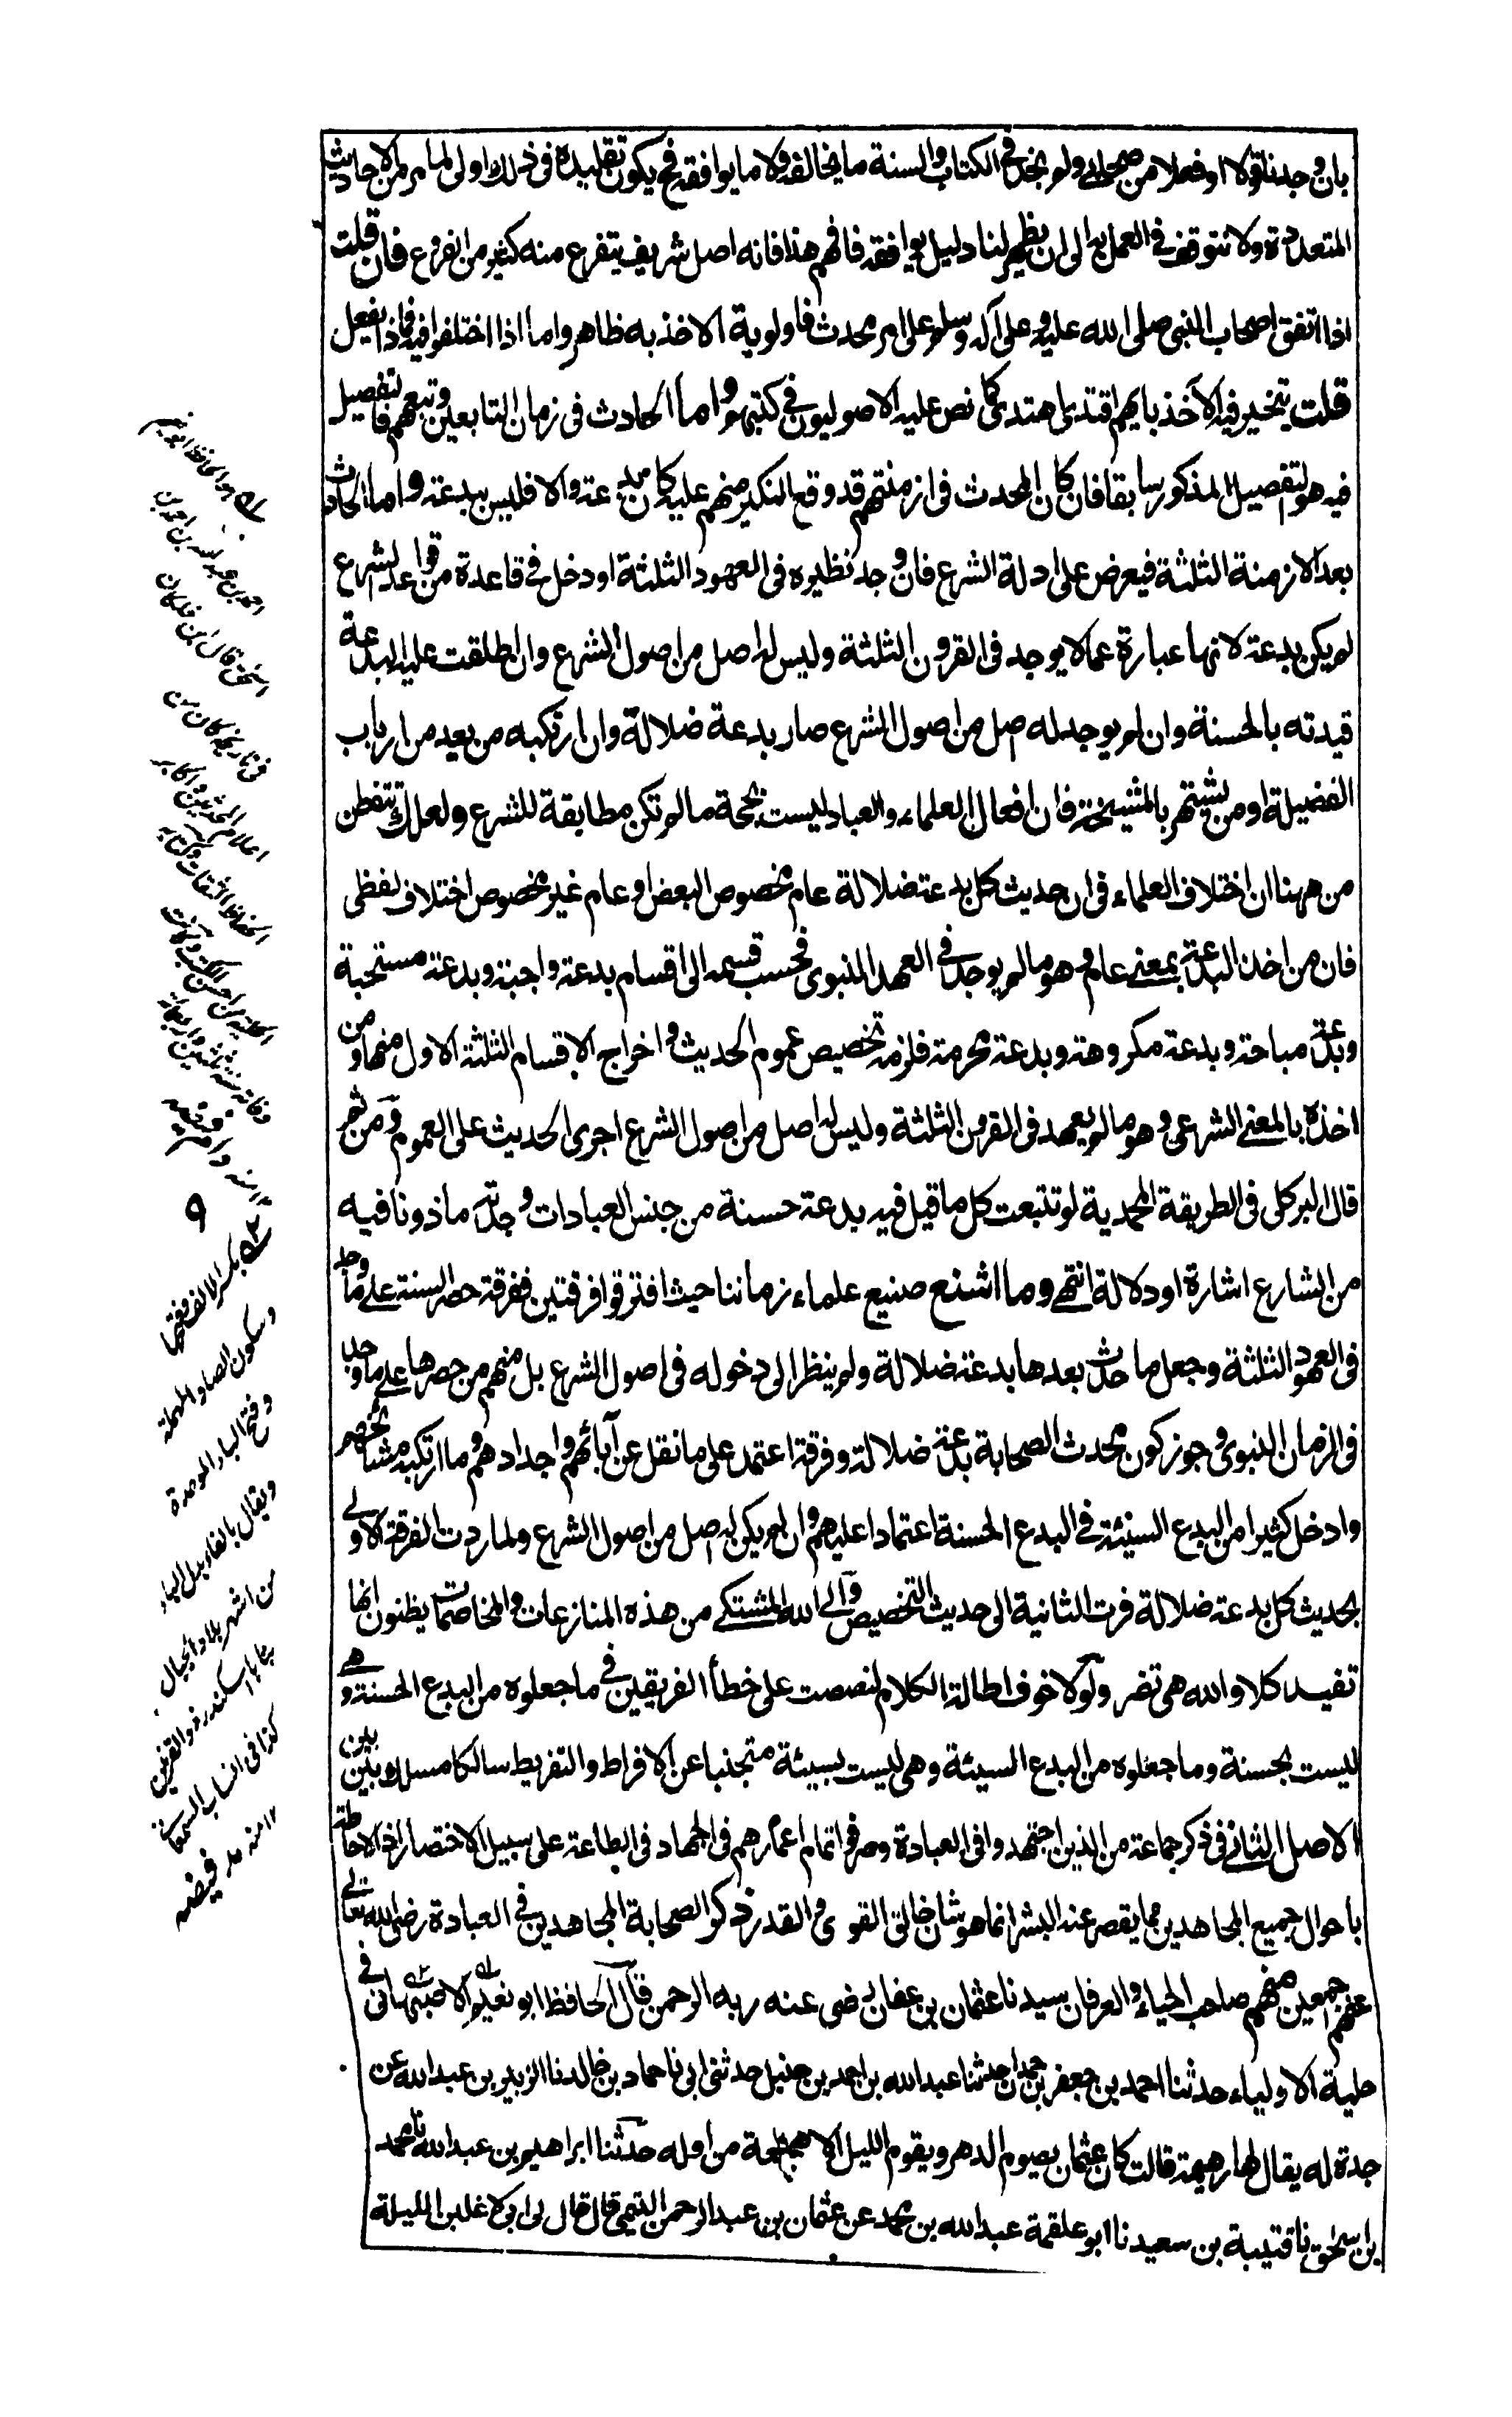 بان وجدنا قولا او فعلا من صحابي ولم نجد في الكتاب والسنة ما يخالفه ولا ما يوافقه فح يكون تقليده في ذلك اولى لما مر من الاحاديث
المتعددة ولا نتوقف في العمل به الى ان يظهر لنا دليل يوافقه فافهم هذا فانه اصل شريف يتفرع منه كثير من الفروع فان قلت
اذا اتفق اصحاب النبي صلى الله عليه وعلى آله وسلم على امر محدث فاولوية الاخذ به ظاهر واما اذا اختلفوا فيه فماذا يفعل
قلت يتخير فيه الآخذ بايهم اقتدى اهتدى كما نص عليه الاصوليون في كتبهم واما الحادث في زمان التابعين وتبعهم فالتفصيل
فيه هو التفصيل المذكور سابقا فان كان المحدث في ازمنتهم قد وقع النكير منهم عليه كان بدعة والا فليس ببدعة واما الحادث
بعد الازمنة الثلثة فيعرض على ادلة الشرع فان وجد نظيره في العهود الثلثة او دخل في قاعدة من قواعد الشرع
لم يكن بدعة لانها عبارة عما لا يوجد في القرون الثلثة وليس له اصل من اصول الشرع وان اطلقت عليه البدعة
قيدته بالحسنة وان لم يوجد له اصل من اصول الشرع صار بدعة ضلالة وان ارتكبه من يعد من ارباب
الفضيلة او من يشتهر بالمشيخة فان افعال العلماء والعباد ليست بحجة ما لم تكن مطابقة للشرع ولعلك تتفطن
من ههنا ان اختلاف العلماء في ان حديث كل بدعة ضلالة عام مخصوص البعض او عام غير مخصوص اختلاف لفظي
فان من اخذ البدعة بمعنى عام وهو ما لم يوجد في العهد النبوي فحسب قسمه الى اقسام بدعة واجبة وبدعة مستحبة
وبدعة مباحة وبدعة مكروهة وبدعة محرمة فلزمه تخصيص عموم الحديث واخراج الاقسام الثلثة الاول منها ومن
اخذه بالمعنى الشرعي وهو ما لم يعهد في القرون الثلثة وليس له اصل من اصول الشرع اجرى الحديث على العموم ومن ثم
قال البركلي في الطريقة المحمدية لو تتبعت كل ما قيل فيه بدعة حسنة من جنس العبادات وجدته ماذونا فيه
من الشارع اشارة او دلالة انتهى وما اشنع صنيع علماء زماننا حيث افترقوا فرقتين ففرقة حصر السنة على ما وجد
في العهود الثلثة وجعل ما حدث بعدها بدعة ضلالة ولم ينظر الى دخوله في اصول الشرع بل منهم من حصرها على ما وجد
في الزمان النبوي وجوز كون محدث الصحابة بدعة ضلالة وفرقة اعتمد على ما نقل عن آبائهم واجدادهم وما ارتكبه مشائخهم
وادخل كثيرا من البدع السيئة في البدع الحسنة اعتمادا عليهم وان لم يكن له اصل من اصول الشرع ولما ردت الفرقة الاولى
بحديث كل بدعة ضلالة فرت الثانية الى حديث التخصيص والى الله المشتكى من هذه المنازعات والمخاصمات يظنون انها
تفيد كلا والله هي تضر ولولا خوف اطالة الكلام لنصصت على خطأ الفريقين في ما جعلوه من البدع الحسنة وهي
ليست بحسنة وما جعلوه من البدع السيئة وهي ليست بسيئة متجنبا عن الافراط والتفريط سالكا مسلك بين بين
الاصل الثاني في ذكر جماعة من الذين اجتهدوا في العبادة وصرفوا تمام اعمارهم في الجهاد في الطاعة على سبيل الاختصار اذ الاحاطة
باحوال جميع المجاهدين مما يقصر عنه البشر انما هو شان خالق القوى والقدر ذكر الصحابة المجاهدين في العبادة رضي الله تعالى
عنهم اجمعين منهم صاحب الحياء والعرفان سيدنا عثمان بن عفان رضى عنه ربه الرحمن قال الحافظ ابو نعيم الاصبهاني في
حلية الاولياء حدثنا احمد بن جعفر بن حمدان حدثنا عبد الله بن احمد بن حنبل حدثني ابي نا حماد بن خالد نا الزبير بن عبد الله عن
جدة له يقال لها رهيمة قالت كان عثمان يصوم الدهر ويقوم الليل الا هجعة من اوله حدثنا ابراهيم بن عبد الله نا محمد
بن اسحق نا قتيبة بن سعيد نا ابو علقمة عبد الله بن محمد عن عثمان بن عبد الرحمن التيمي قال قال لي ابي لاغلبن الليلة
هو الحافظ ابو نعيم
احمد بن عبد الله بن احمد بن
اسحق قال ابن خلكان
في تاريخه كان من
اعلام المحدثين واكابر
الحفاظ الثقات وكتابه
الحلية من احسن الكتب وكانت
وفاته سنة ثلثين واربعمائة
١٢ منه دام فيضه
٩
بكسر الالف وفتحها
وسكون الصاد المهملة
وفتح الباء الموحدة
ويقال بالفاء بدل الباء
من اشهر بلاد الجبال
بناها اسكندر ذو القرنين
كذا في انساب السمعاني
١٢ منه مد فيضه